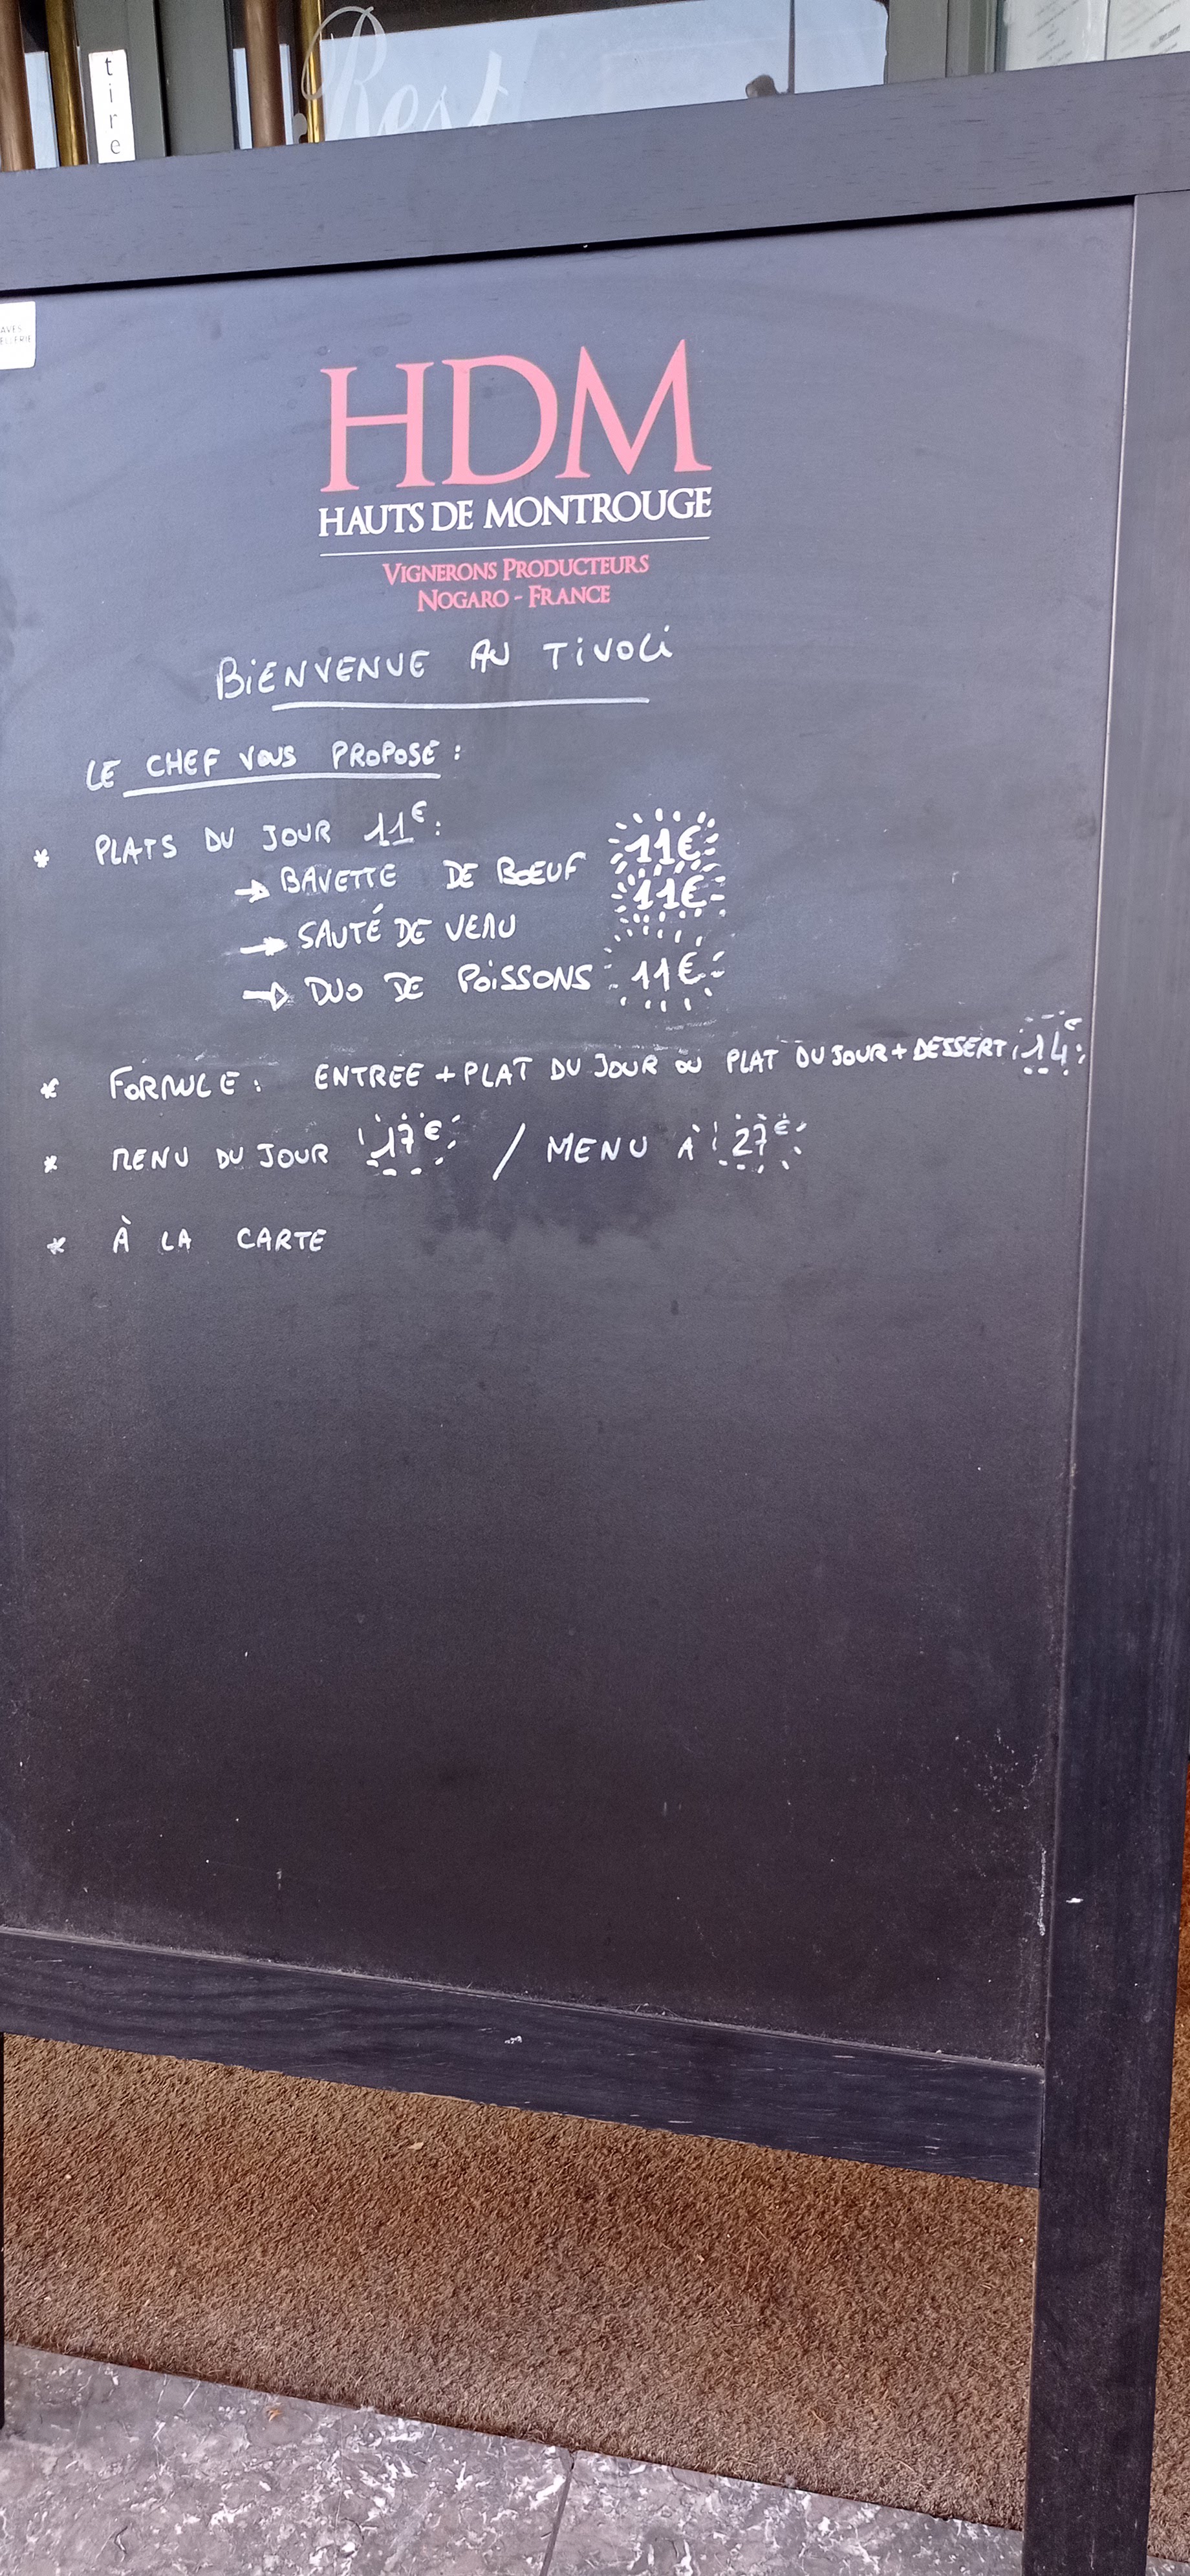 Rest
tire
AVES
ELLERIE
HDM
HAUTS DE MONTROUGE
VIGNERONS PRODUCTEURS
NOGARO - FRANCE
BIENVENUE AU TIVOLI
LE CHEF VOUS PROPOSE :
* PLATS DU JOUR 11€ :
→ BAVETTE DE BOEUF 11€
→ SAUTÉ DE VEAU 11€
→ DUO DE POISSONS 11€
* FORMULE : ENTREE + PLAT DU JOUR OU PLAT DU JOUR + DESSERT 14€
* MENU DU JOUR 17€ / MENU À 27€
* À LA CARTE